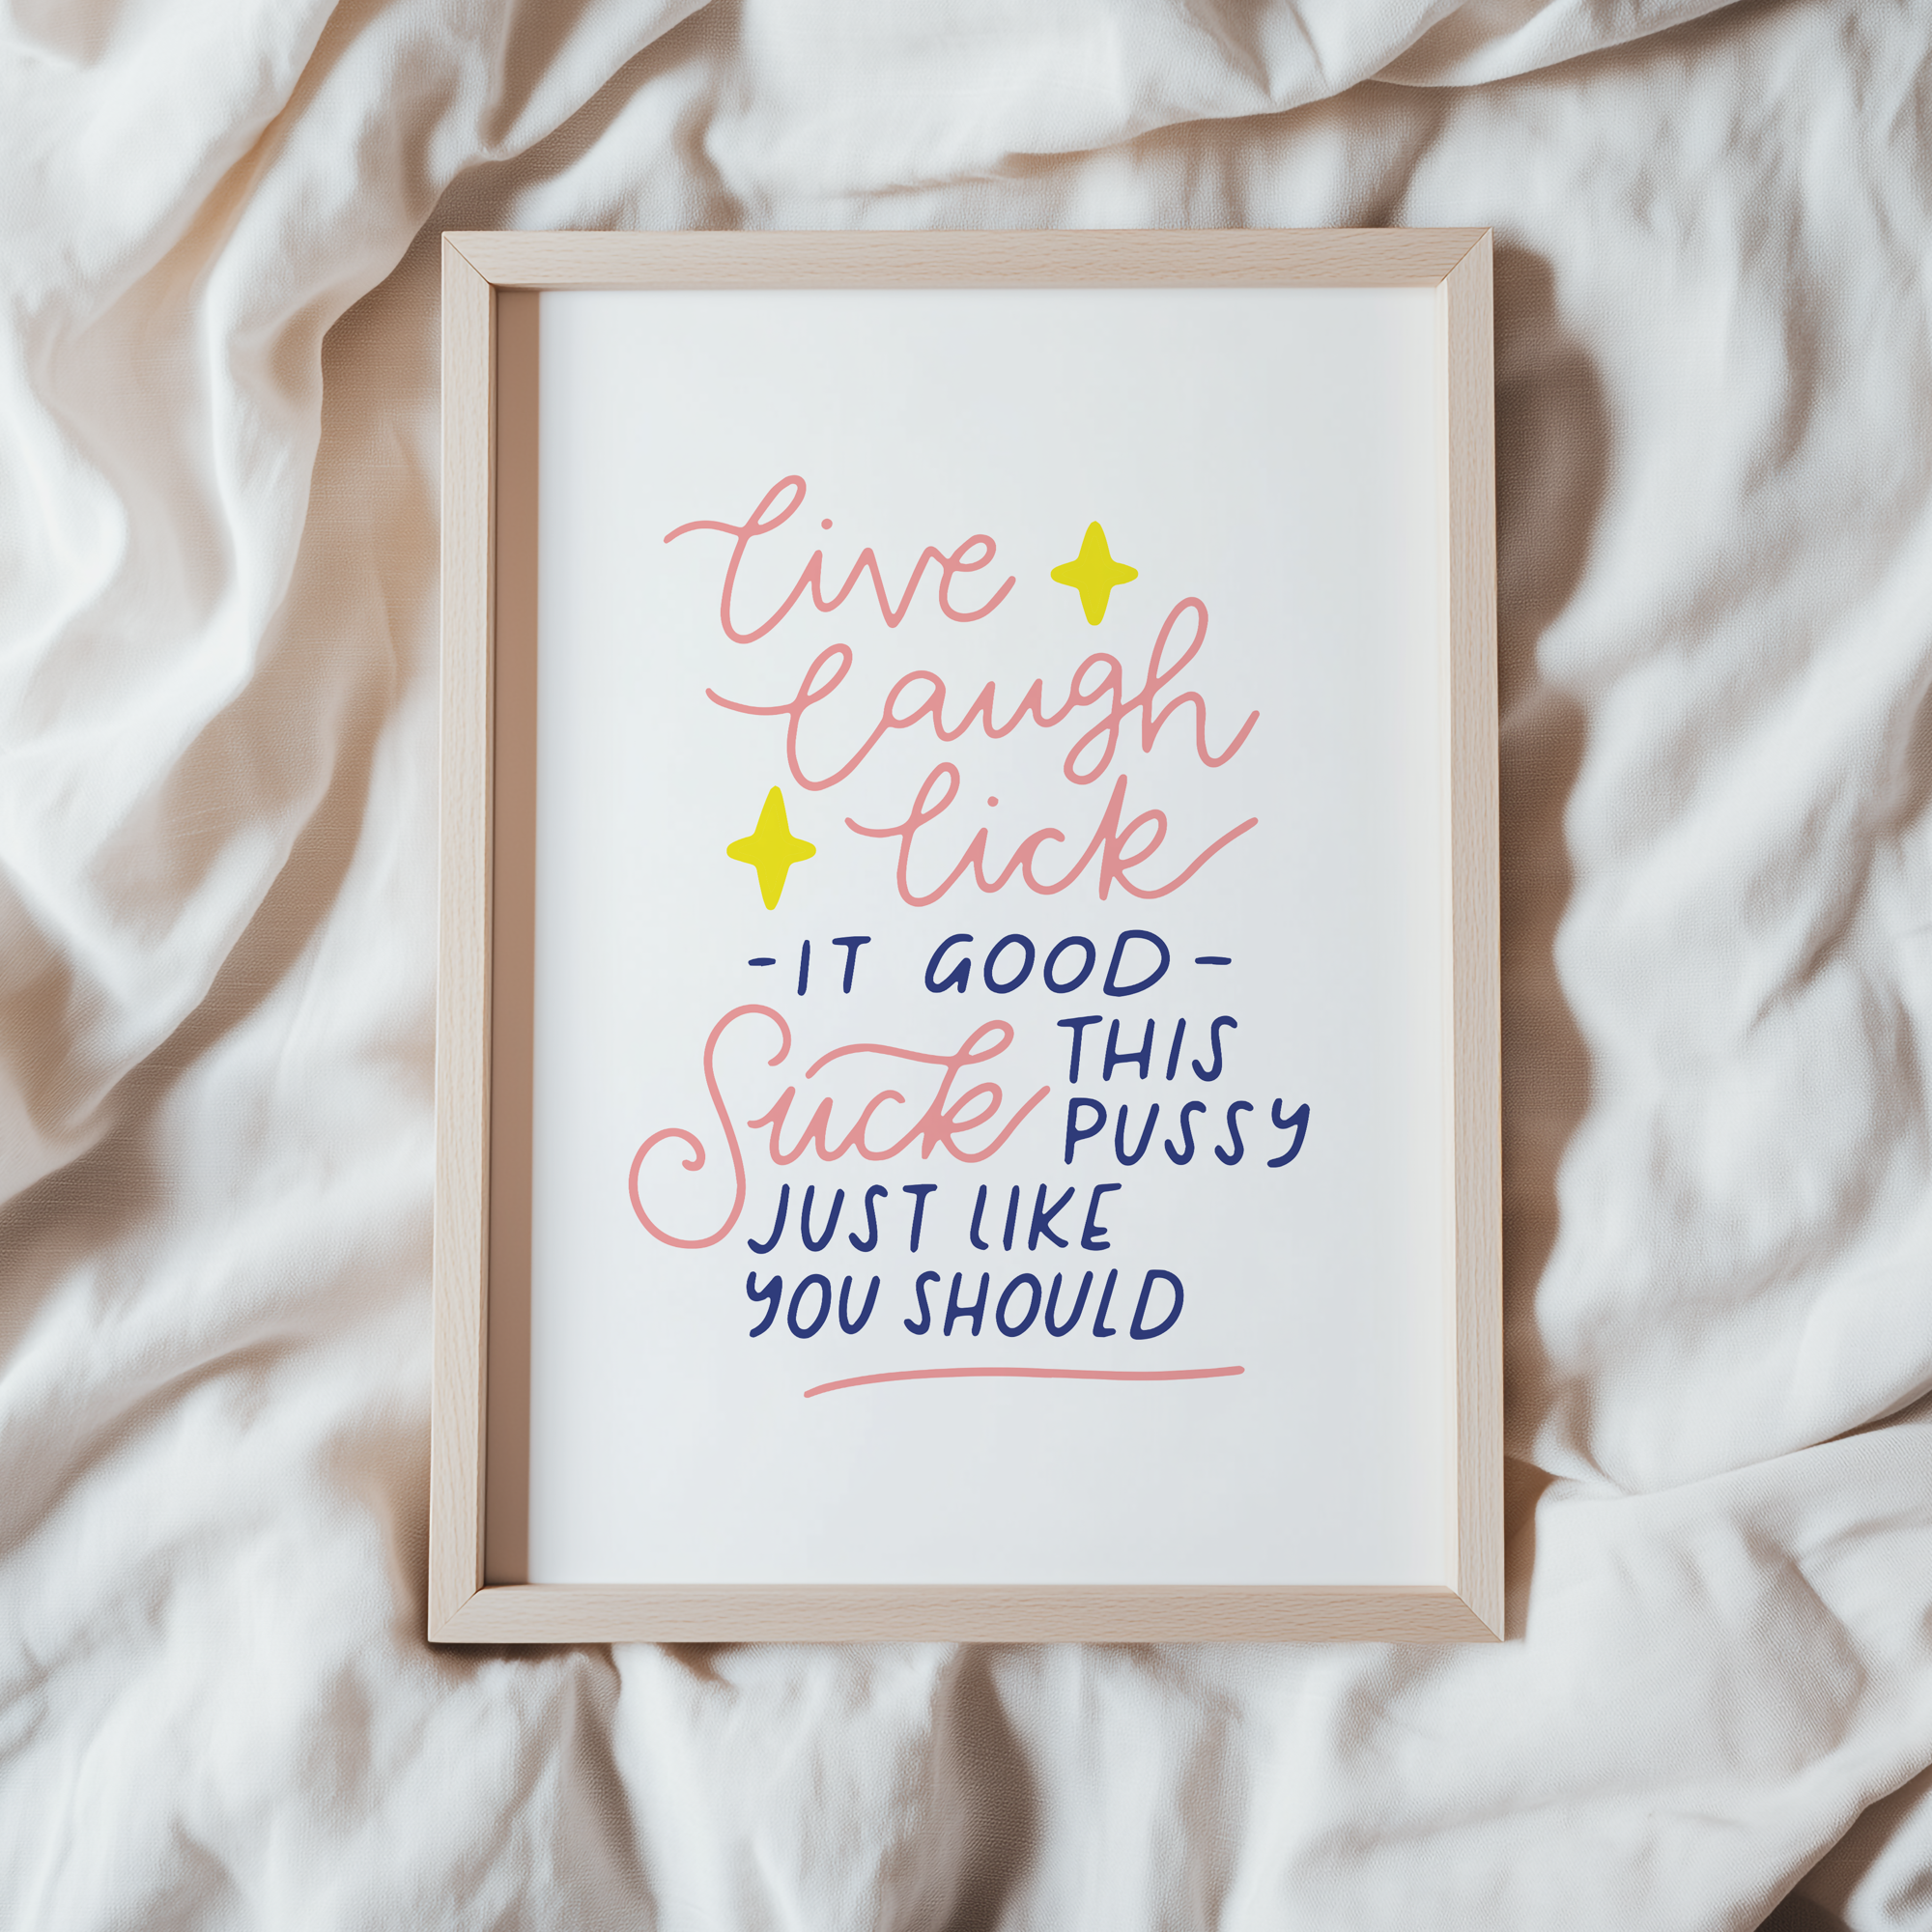 live
laugh
lick
-IT GOOD-
Suck THIS
PUSSY
JUST LIKE
YOU SHOULD